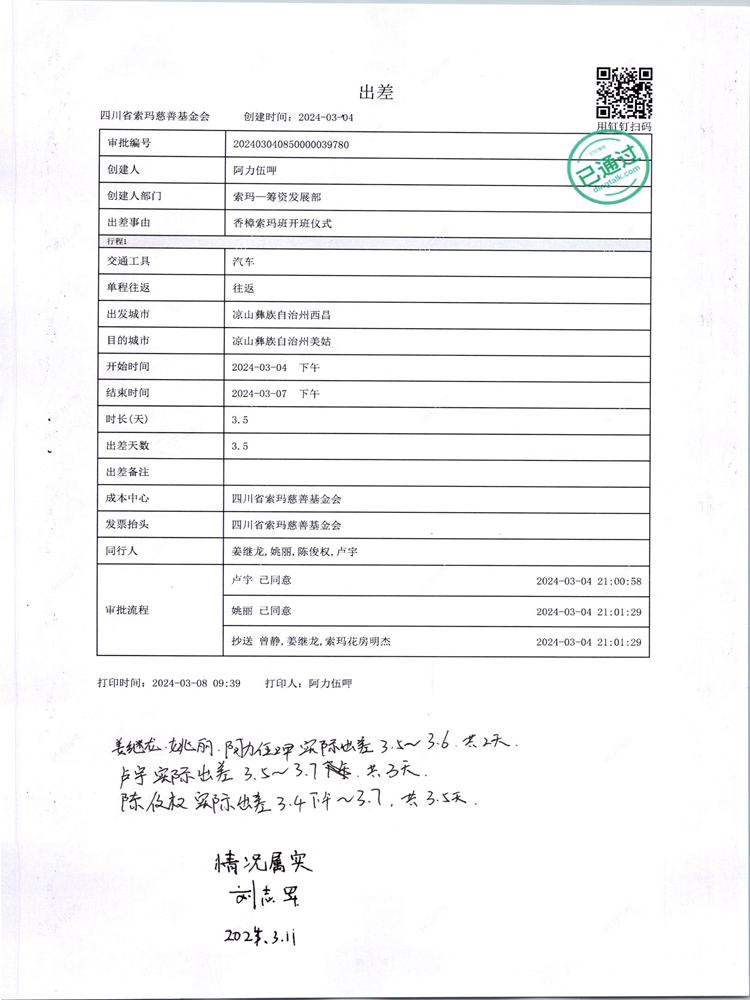 出差
四川省索玛慈善基金会 创建时间：2024-03-04
用钉钉扫码
已通过
dingtalk.com
审批编号 202403040850000039780
创建人 阿力伍呷
创建人部门 索玛—筹资发展部
出差事由 香樟索玛班开班仪式
行程1
交通工具 汽车
单程往返 往返
出发城市 凉山彝族自治州西昌
目的城市 凉山彝族自治州美姑
开始时间 2024-03-04 下午
结束时间 2024-03-07 下午
时长(天) 3.5
出差天数 3.5
出差备注
成本中心 四川省索玛慈善基金会
发票抬头 四川省索玛慈善基金会
同行人 姜继龙,姚丽,陈俊权,卢宇
审批流程
卢宇 已同意 2024-03-04 21:00:58
姚丽 已同意 2024-03-04 21:01:29
抄送 曾静,姜继龙,索玛花房明杰 2024-03-04 21:01:29
打印时间：2024-03-08 09:39 打印人：阿力伍呷
姜继龙.姚丽.阿力伍呷 实际出差 3.5～3.6.共2天.
卢宇 实际出差 3.5～3.7 共3天.
陈俊权 实际出差 3.4下午～3.7, 共3.5天.
情况属实
刘志军
2024.3.11